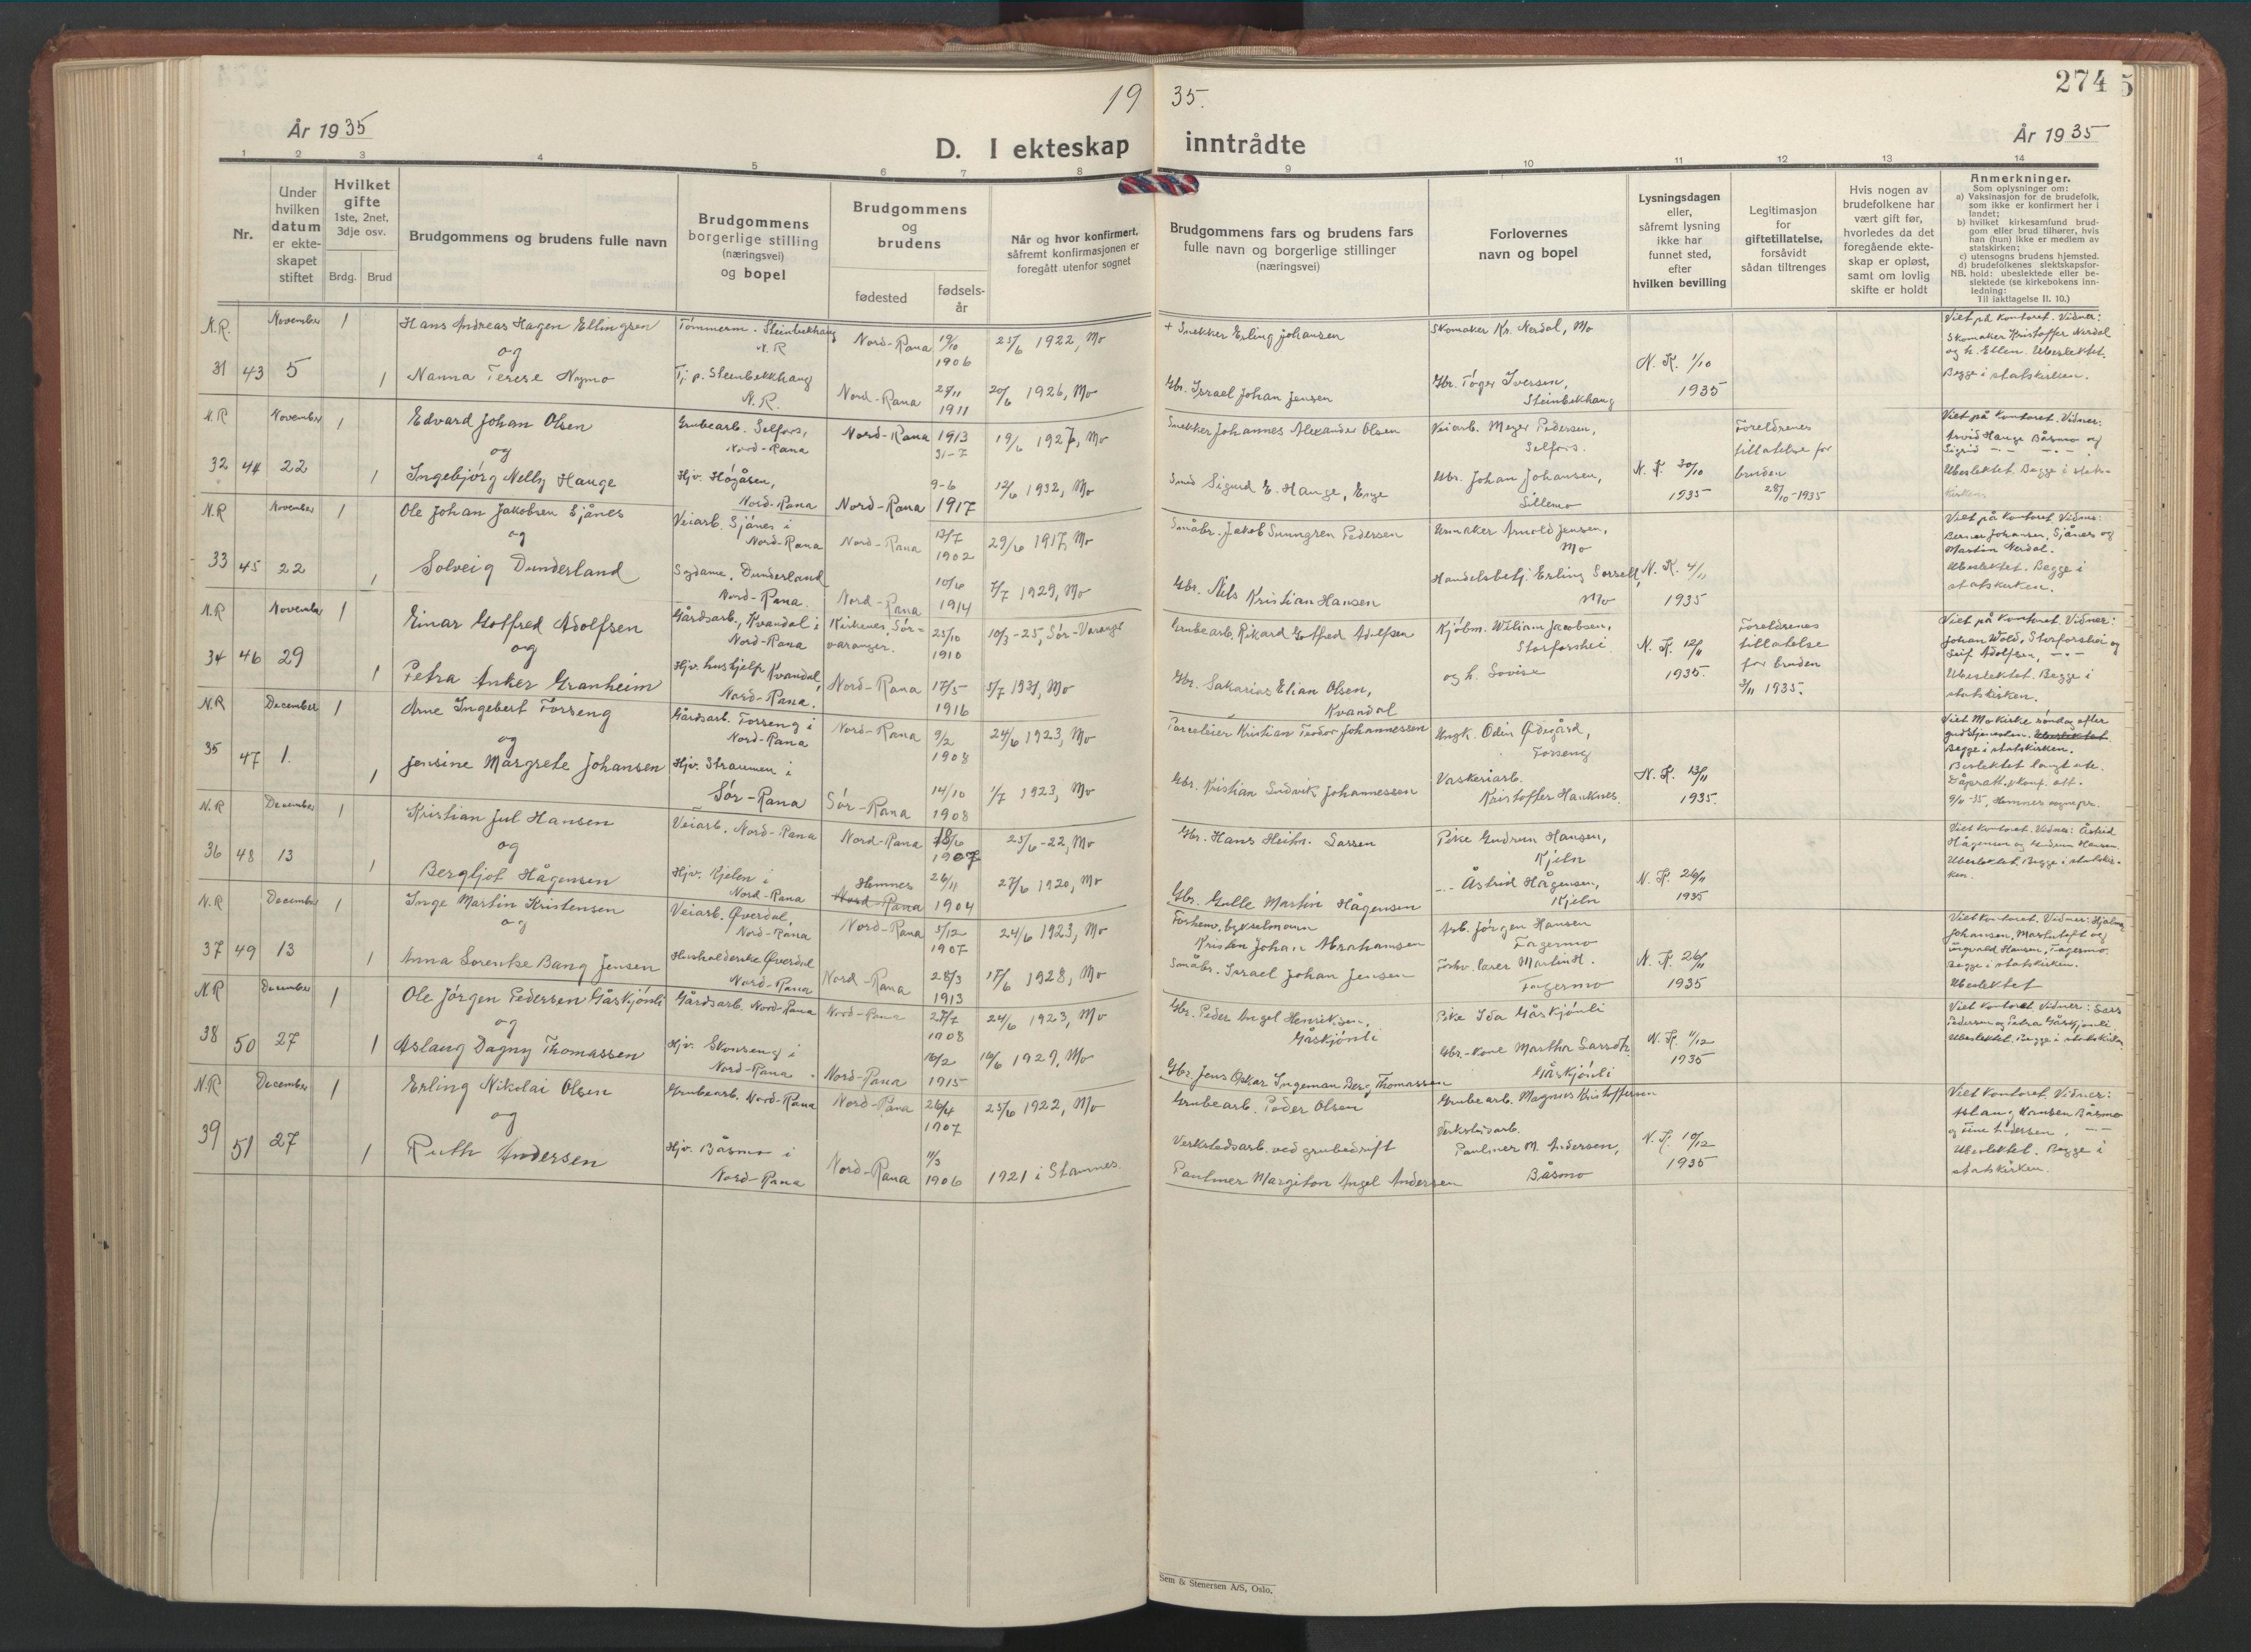 274
19 35.
År 1935
D. I ekteskap inntrådte
År 1935
1 2 3 4 5 6 7 8 9 10 11 12 13 14
Nr.
Under hvilken datum er ekteskapet stiftet
Hvilket gifte
1ste, 2net, 3dje osv.
Brdg. Brud
Brudgommens og brudens fulle navn
Brudgommens borgerlige stilling (næringsvei) og bopel
Brudgommens og brudens
fødested
fødsels-år
Når og hvor konfirmert, såfremt konfirmasjonen er foregått utenfor sognet
Brudgommens fars og brudens fars fulle navn og borgerlige stillinger (næringsvei)
Forlovernes navn og bopel
Lysningsdagen eller, såfremt lysning ikke har funnet sted, efter hvilken bevilling
Legitimasjon for giftetillatelse, forsåvidt sådan tiltrenges
Hvis nogen av brudefolkene har vært gift før, hvorledes da det foregående ekteskap er opløst, samt om lovlig skifte er holdt
Anmerkninger.
Som oplysninger om:
a) Vaksinasjon for de brudefolk, som ikke er konfirmert her i landet;
b) hvilket kirkesamfund brudgom eller brud tilhører, hvis han (hun) ikke er medlem av statskirken;
c) utensogns brudens hjemsted.
d) brudefolkenes slektskapsforhold: ubeslektede eller beslektede (se kirkebokens innledning:
NB. Til iakttagelse II. 10.)
N.R. 31 43 November 5 1 1
Hans Andreas Hagen Ellingsen
og
Nanna Terese Nymo
Tømmerm. Steinbekkhaug N.R
Tj. p. Steinbekkhaug N.R.
Nord-Rana 19/10 1906 25/6 1922, Mo
Nord-Rana 27/11 1911 20/6 1926, Mo
+ Snekker Erling Johansen
Gbr. Israel Johan Jensen
Skomaker Kr. Nerdal, Mo
Gbr. Tøger Iversen, Steinbekhaug
N. K. 1/10 1935
Viet på kontoret. Vidner: Skomaker Kristoffer Nerdal og h. Ellen. Ubeslektet. Begge i statskirken.
N.R 32 44 November 22 1 1
Edvard Johan Olsen
og
Ingebjørg Nelly Hauge
Grubearb. Selfors, Nord-Rana
Hjv. Høgåsen, Nord-Rana
Nord-Rana 1913 31-7 19/6 1927, Mo
Nord-Rana 9-6 1917 12/6 1932, Mo
Snekker Johannes Alexander Olsen
Smed Sigurd E. Hauge, Enge
Veiarb. Meyer Pedersen, Selfors.
Gbr. Johan Johansen, Sillemo
N. K. 30/10 1935
Foreldrenes tillatelse for bruden 28/10-1935
Viet på kontoret. Vidner: Arvid Hauge Båsmo og Sigrid -"- -"-. Ubeslektet. Begge i stats-kirken.
N.R 33 45 November 22 1 1
Ole Johan Jakobsen Sjånes
og
Solveig Dunderland
Veiarb. Sjånes i Nord-Rana
Sydame, Dunderland Nord-Rana.
Nord-Rana 13/7 1902 29/6 1917, Mo
Nord-Rana 10/6 1914 7/7 1929, Mo
Småbr. Jakob Pedersen
Gbr. Nils Kristian Hansen
Urmaker Arnold Jensen, Mo
Handelsbetj. Erling Mo
N. K. 4/11 1935
Viet på kontoret. Vidner: Berner Johansen, Sjånes og Martin Nerdal. Ubeslektet. Begge i statskirken.
N.R 34 46 November 29 1 1
Einar Gotfred Adolfsen
og
Petra Anker Granheim
Gårdsarb., Kvandal i Nord-Rana
Hjv. hushjelp Kvandal, Nord-Rana.
Kirkenes, Sør-varanger. 25/10 1910 10/3-25, Sør-Varange
Nord-Rana 17/5 1916 5/7 1931, Mo
Grubearb. Rikard Gotfred Adolfsen
Gbr. Sakarias Elian Olsen, Kvandal
Kjøbm. William Jacobsen, Storforshei.
og h. Lovise
N. K. 12/11 1935.
Foreldrenes tillatelse for bruden 3/11 1935.
Viet på kontoret. Vidner: Johan Wold, Storforshei og Leif Adolfsen, -"-. Ubeslektet. Begge i statskirken.
N.R 35 47 December 1. 1 1
Arne Ingebert Forseng
og
Jensine Margrete Johansen
Gårdsarb. Forseng i Nord-Rana
Hjv. Straumen i Sør-Rana
Nord-Rana 9/2 1908 24/6 1923, Mo
Sør-Rana 14/10 1908 1/7 1923, Mo
Parceleier Kristian Teodor Johannessen
Gbr. Kristian Ludvik Johannessen
Ungk. Odin Ødegård, Forseng
Vaskeriarb. Kristoffer Hauknes
N. K. 13/11 1935.
Viet Mo kirke søndag efter gudstjenesten. Ubeslektet. Begge i statskirken. Beslektet langt ute. Dåpsatt. & konf. att. 9/11-35, Hemnes sognepr.
N.R 36 48 December 13 1 1
Kristian Jul Hansen
og
Bergljot Hågensen
Veiarb. Nord-Rana
Hjv. Kjelen i Nord-Rana
Nord-Rana 18/6 1907 25/6-22, Mo
Hemnes Nord-Rana 26/11 1904 27/6 1920, Mo
Gbr. Hans Lassen
Gbr. Gulle Martin Hågensen
Pike Gudrun Hansen, Kjeln
-"- Åstrid Hågensen, Kjeln
N. K. 26/11 1935
Viet kontoret. Vidner: Åstrid Hågensen og Gudrun Hansen. Ubeslektet. Begge i statskir-ken.
N.R 37 49 December 13 1 1
Inge Martin Kristensen
og
Anna Lorentse Bang Jensen
Veiarb. Øverdal, Nord-Rana
Husholderske Øverdal Nord-Rana
Nord-Rana 5/12 1907 24/6 1923, Mo
Nord-Rana 28/3 1913 17/6 1928, Mo
Forhenv. bykselmann Kristen Johan Abrahamsen
Småbr. Israel Johan Jensen
Arb. Jørgen Hansen Fagermo
Forhv. lærer Martin H. Fagermo
N. K. 26/11 1935
Viet kontoret. Vidner: Hjalmar Johansen, og Ingvald Hansen, Fagermo. Begge i statskirken. Ubeslektet
N.R 38 50 December 27 1 1
Ole Jørgen Pedersen Gåskjønli
og
Aslaug Dagny Thomassen
Gårdsarb. Nord-Rana
Hjv. Skonseng i Nord-Rana
Nord-Rana 27/7 1908 24/6 1923, Mo
Nord-Rana 16/2 1915 16/6 1929, Mo
Gbr. Peder Angel Henriksen, Gåskjønli
Gbr. Jens Oskar Ingeman Berg Thomassen
Pike Ida Gåskjønli
Gbr.-kone Martha Gåskjønli
N. K. 11/12 1935
Viet kontoret. Vidner: Lars Pedersen og Petra Gåskjønli. Ubeslektet. Begge i statskirken
N.R 39 51 December 27 1 1
Erling Nikolai Olsen
og
Ruth Andersen
Grubearb. Nord-Rana
Hjv. Båsmo i Nord-Rana
Nord-Rana 26/4 1907 25/6 1922, Mo
Nord-Rana 11/3 1906 1921 i Stamnes.
Grubearb. Peder Olsen
Verkstedsarb. ved grubedrift Paulmer Margiton Angel Andersen
Grubearb. Magnus Kristoffersen
Verkstedsarb. Paulmer M. Andersen, Båsmo
N. K. 10/12 1935
Viet kontoret. Vidner: Aslaug Hansen Båsmo og Tine Andersen, -"-. Ubeslektet. Begge i statskirken.
Sem & Stenersen A/S, Oslo.